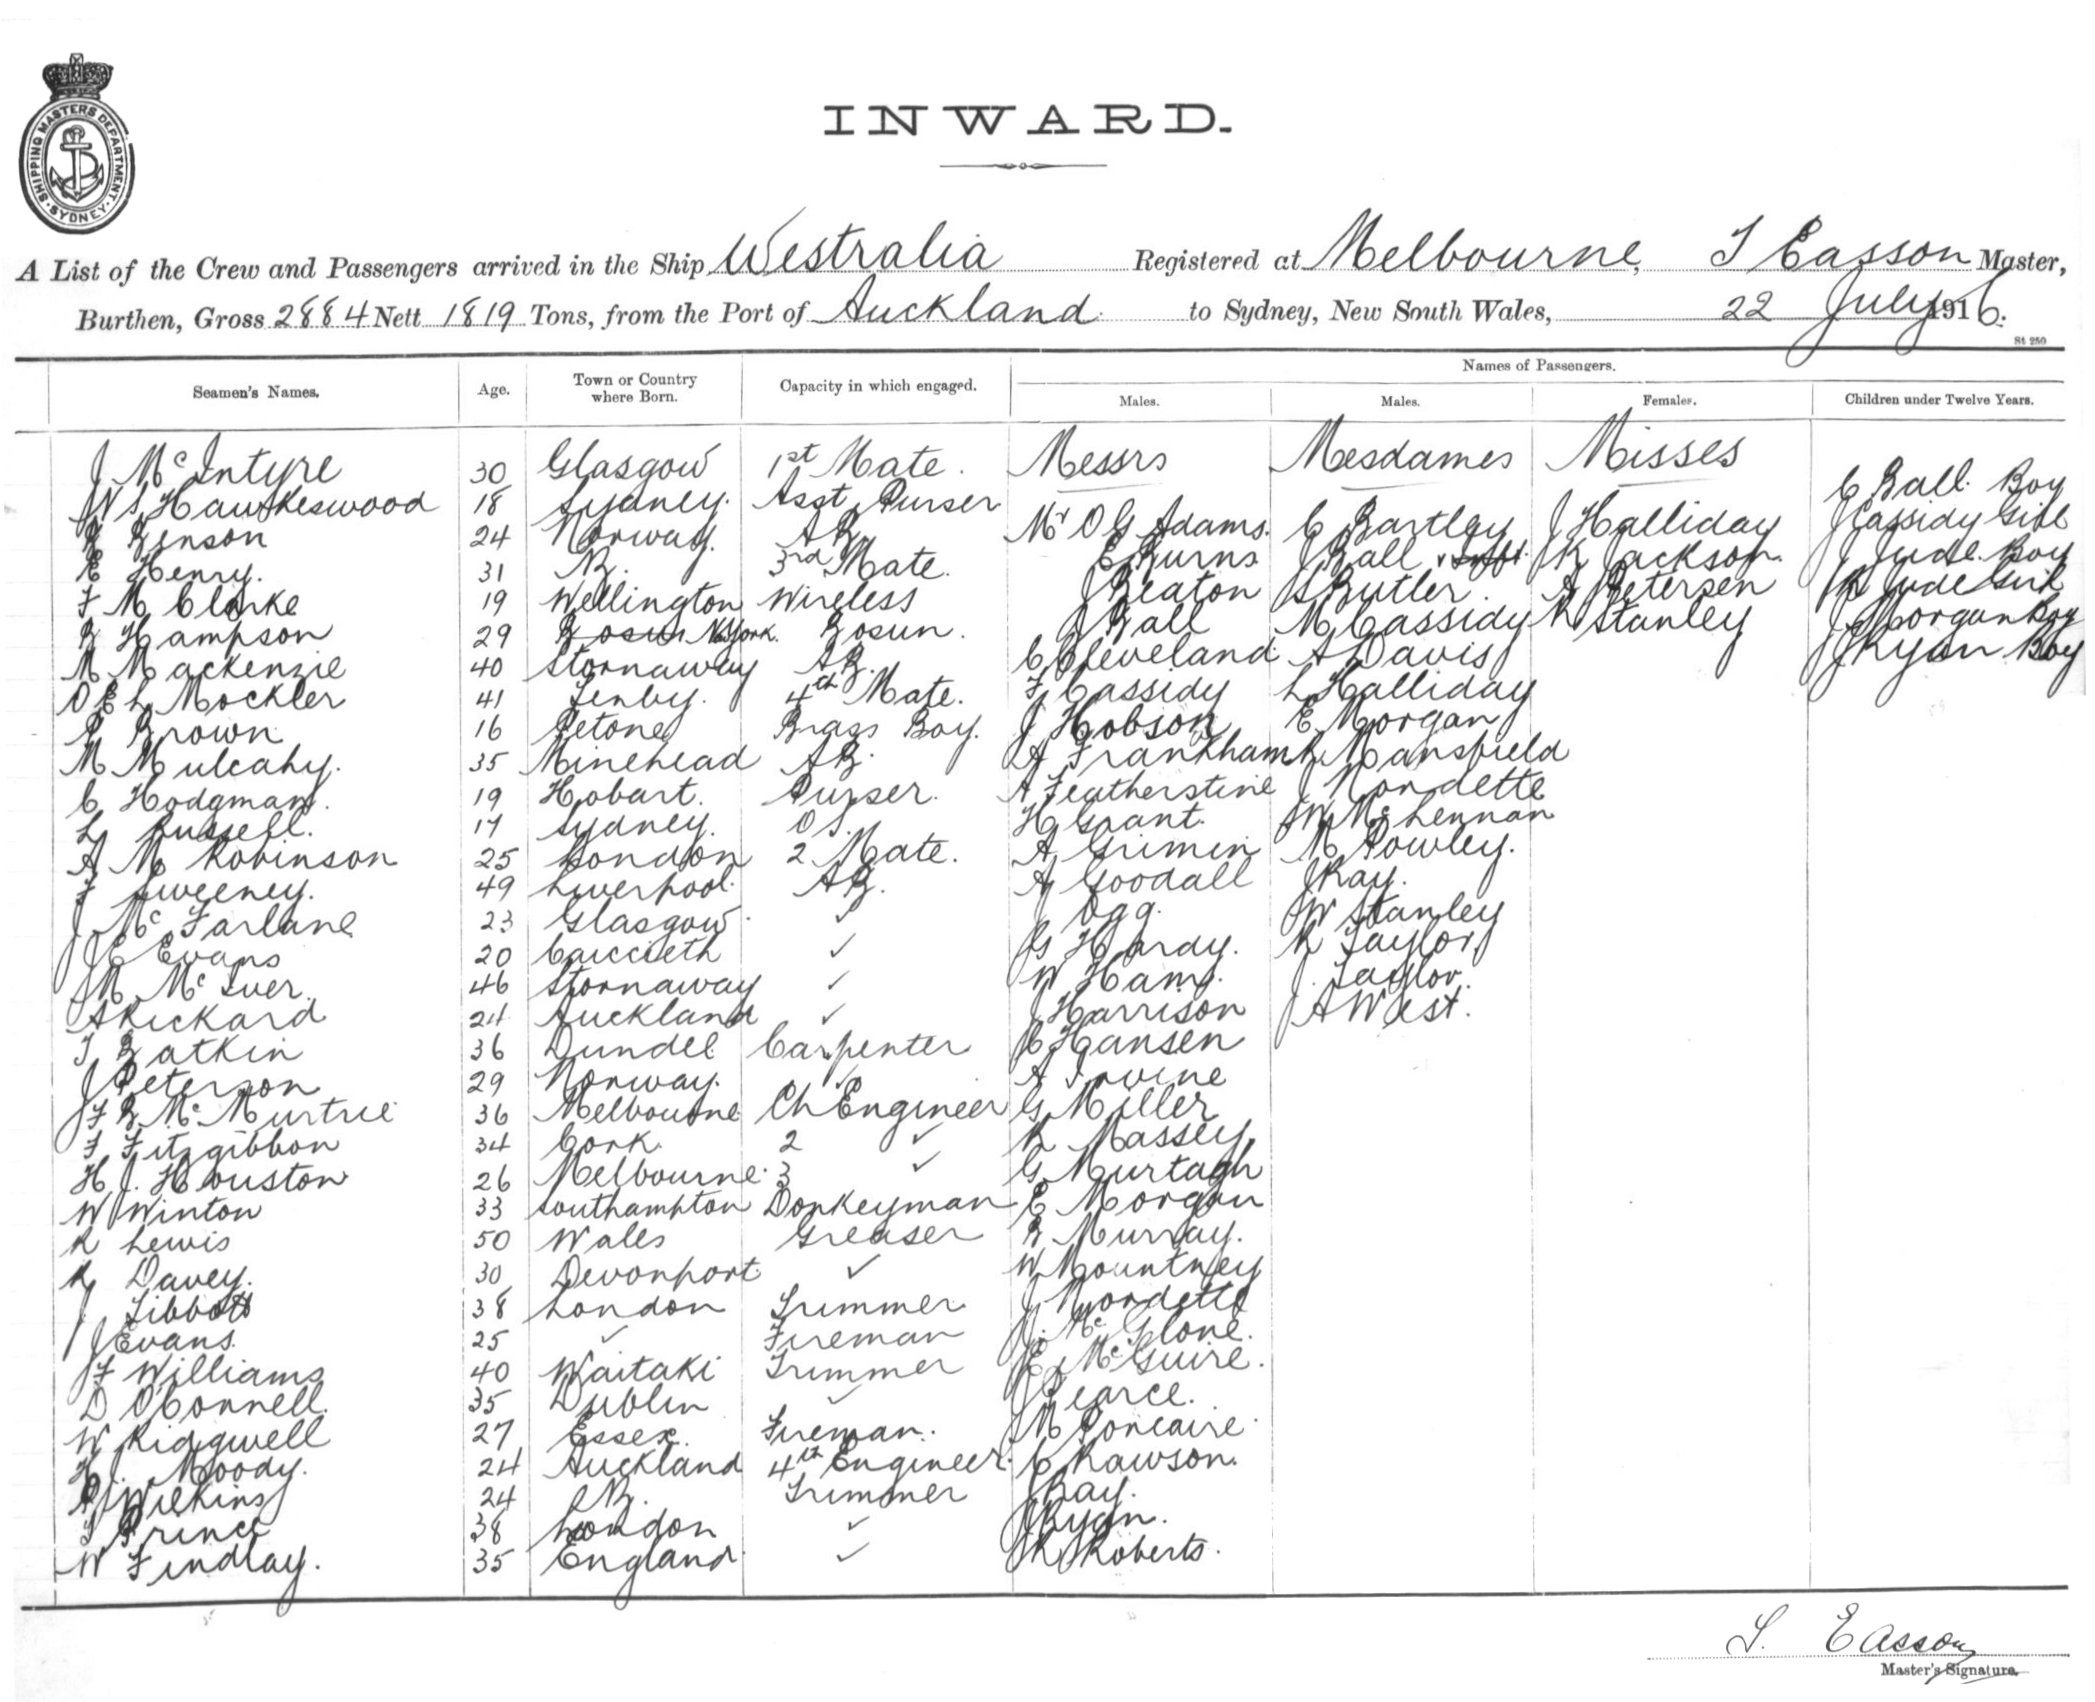 SHIPPING MASTERS DEPARTMENT. SYDNEY.
INWARD.
A List of the Crew and Passengers arrived in the Ship Westralia Registered at Melbourne, Easson Master,
Burthen, Gross 2884 Nett 1819 Tons, from the Port of Auckland to Sydney, New South Wales, 22 July 1916.
St 250
Names of Passengers.
Seamen's Names. Age. Town or Country where Born. Capacity in which engaged. Males. Males. Females. Children under Twelve Years.
Messrs Mesdames Misses
J McIntyre 30 Glasgow 1st Mate. C Ball Boy
W S Hawkeswood 18 Sydney. Asst Purser Mr O G Adams. C Bartley J Halliday J Cassidy Girl
Benson 24 Norway. AB. E Burns J Ball K Jackson. J Jude Boy
E Henry. 31 NZ. 3rd Mate. J Beaton S Butler. A Petersen Jude Girl
F M Clarke 19 Wellington Wireless J Ball M Cassidy R Stanley Morgan Boy
Hampson 29 Bosun N York. Bosun. C Cleveland A Davis J Ryan Boy
M Mackenzie 40 Stornaway AB. F Cassidy L Halliday
O E L Mockler 41 Tenby. 4th Mate. J Hobson E Morgan
Brown 16 Petone Brass Boy. A Frankham Mansfield
M Mulcahy. 35 Minehead AB. A Featherstine J Nordette
C Hodgman. 19 Hobart. Purser. H Grant. W McLennan
L Russell. 17 Sydney. OS. A Grimin M Powley.
A M Robinson 25 London 2 Mate. A Goodall J Ray.
F Sweeney. 49 Liverpool. AB. J Ogg. W Stanley
J McFarlane 23 Glasgow. ✓ G Hardy. R Taylor
J E Evans 20 Caiccieth ✓ W Hams. J. Taylor.
M McIver. 46 Stornaway ✓ J Harrison J A West.
A Rickard 24 Auckland ✓ C Hansen
T Batkin 36 Dundee Carpenter A Irvine
J Peterson 29 Norway. ✓ G Miller
J F B McMurtrie 36 Melbourne Ch Engineer R Massey
F Fitzgibbon 34 Cork. 2 ✓ G Murtagh
H J. Houston 26 Melbourne. 3 ✓ E Morgan
W Winton 33 Southampton Donkeyman B Murray.
R Lewis 50 Wales Greaser W Mountney
R Davey. 30 Devonport ✓ J Nordette
J Tibbott 38 London Trimmer J. McGlone.
J Evans. 25 ✓ Fireman E McGuire.
J F Williams 40 Waitaki Trimmer J Pearce.
D OConnell. 35 Dublin ✓ M Poncaire
W Ridgwell 27 Essex. Fireman. C Rawson.
H J. Moody. 24 Auckland 4th Engineer. J Ray.
Wilkins 24 NZ. Trimmer J Ryan.
Prince 38 London ✓ R Roberts.
W Findlay. 35 England. ✓
Easson
Master's Signature.